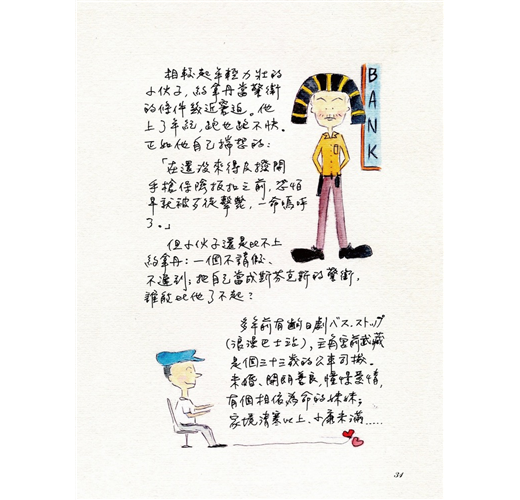 相較起年輕力壯的
小伙子，約拿丹當警衛
的條件幾近窘迫。他
上了年紀，跑也跑不快。
正如他自己揣想的：
「在還沒來得及撥開
手槍保險扳扣之前，恐怕
早就被歹徒擊斃，一命嗚呼
了。」
但小伙子還是比不上
約拿丹：一個不請假、
不遲到；把自己當成斯芬克斯的警衛，
誰能比他了不起？
BANK
多年前有齣日劇バス．ストップ
（浪漫巴士站），主角宮前武藏
是個三十三歲的公車司機。
未婚、開朗善良，憧憬愛情，
有個相依為命的妹妹；
家境清寒以上、小康未滿.....
31